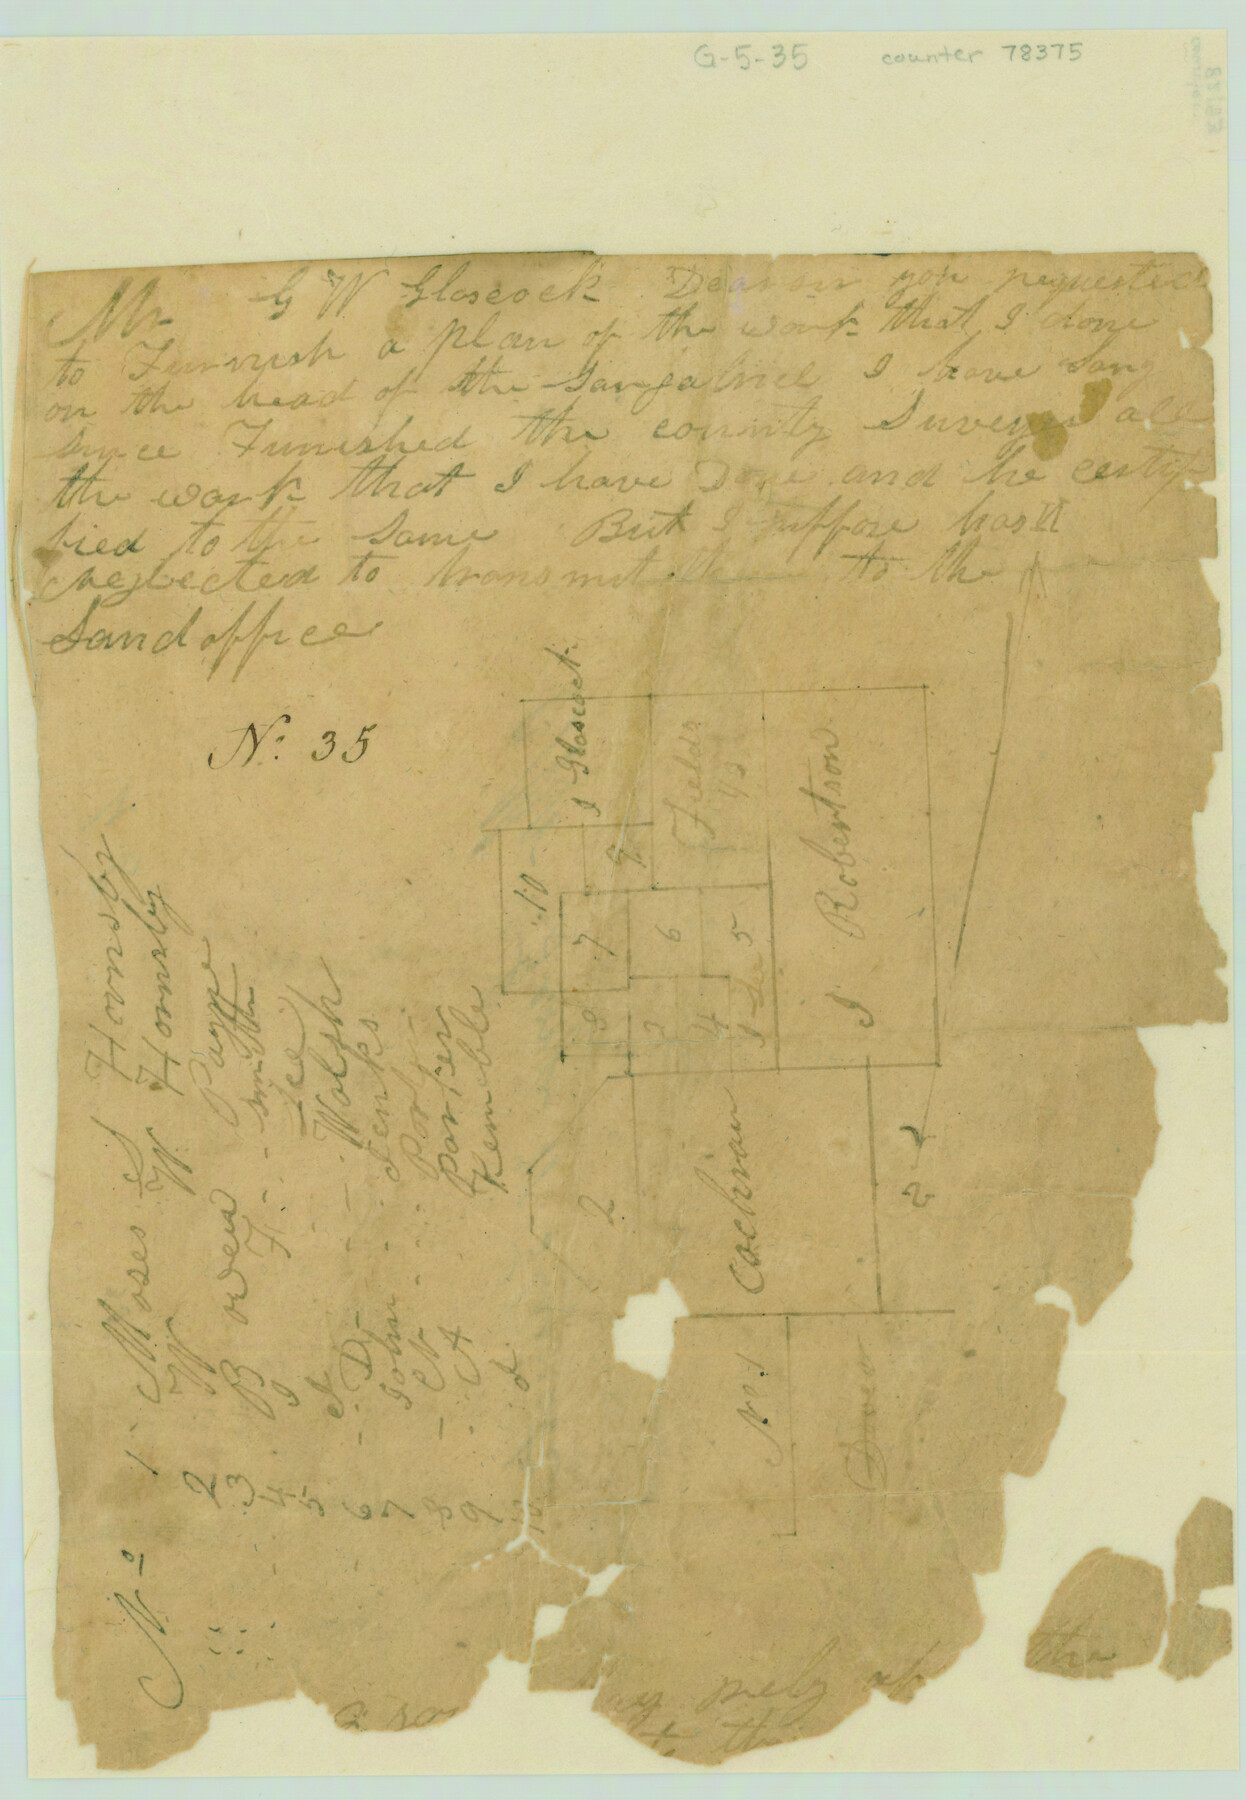 G-5-35 counter 78375
Mr G W Gloscock Dear sir you requested
to Furnish a plan of the work that I done
on the head of the Sangabriel I have Long
since Furnished the county Surveyor all
the work that I have Done and he certify
fied to the same But I suppose has
neglected to transmit to the
Land office
No. 35
I Gloscock
Fields
I Robertson
10
9
7
6
5
3
2
4
I Lee
2
Cochran
No. 1
No 1 Moses S Hornsby
2 W W Hornsby
3 Bowen Payne
4 J F Smith
5 I Lee
6 D Walsh
7 John Jenks
8 N Porter
9 A Porter
10 J Kemble
the